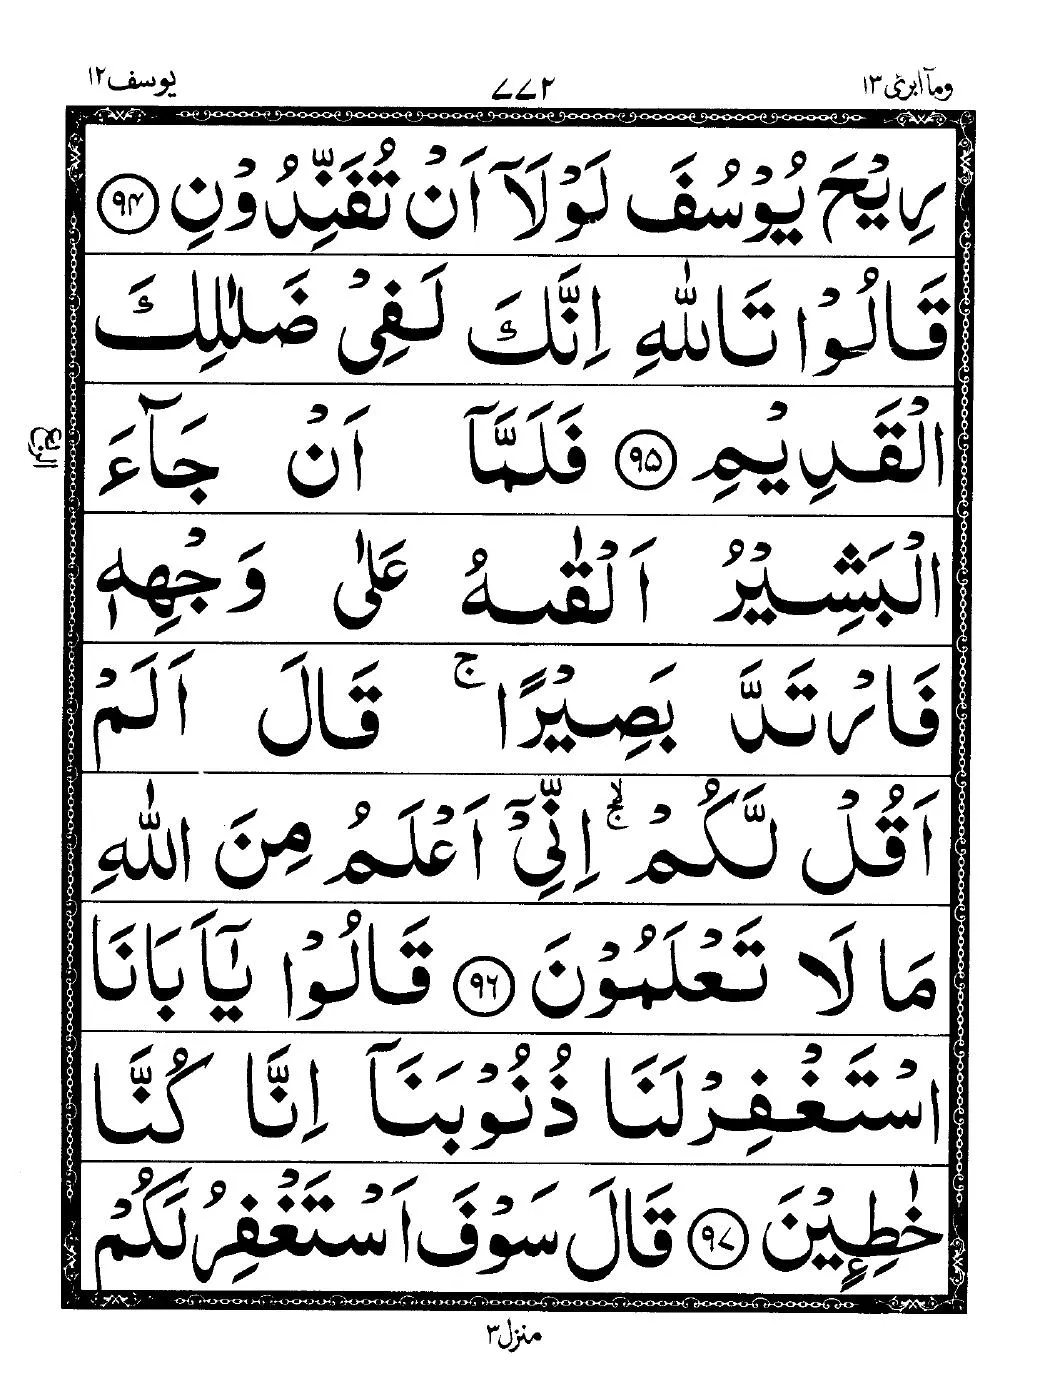 وماۤ ابرئ ١٣
٧٧٢
يوسف ١٢
رِيْحَ يُوْسُفَ لَوْلَاۤ اَنْ تُفَنِّدُوْنِ ﴿٩٤﴾
قَالُوْا تَاللّٰهِ اِنَّكَ لَفِيْ ضَلٰلِكَ
الْقَدِيْمِ ﴿٩٥﴾ فَلَمَّاۤ اَنْ جَآءَ
الْبَشِيْرُ اَلْقٰىهُ عَلٰى وَجْهِهٖ
فَارْتَدَّ بَصِيْرًا ۚ قَالَ اَلَمْ
اَقُلْ لَّكُمْ ۙۚ اِنِّيْۤ اَعْلَمُ مِنَ اللّٰهِ
مَا لَا تَعْلَمُوْنَ ﴿٩٦﴾ قَالُوْا يٰۤاَبَانَا
اسْتَغْفِرْ لَنَا ذُنُوْبَنَاۤ اِنَّا كُنَّا
خٰطِـِٕيْنَ ﴿٩٧﴾ قَالَ سَوْفَ اَسْتَغْفِرُ لَكُمْ
منزل ٣